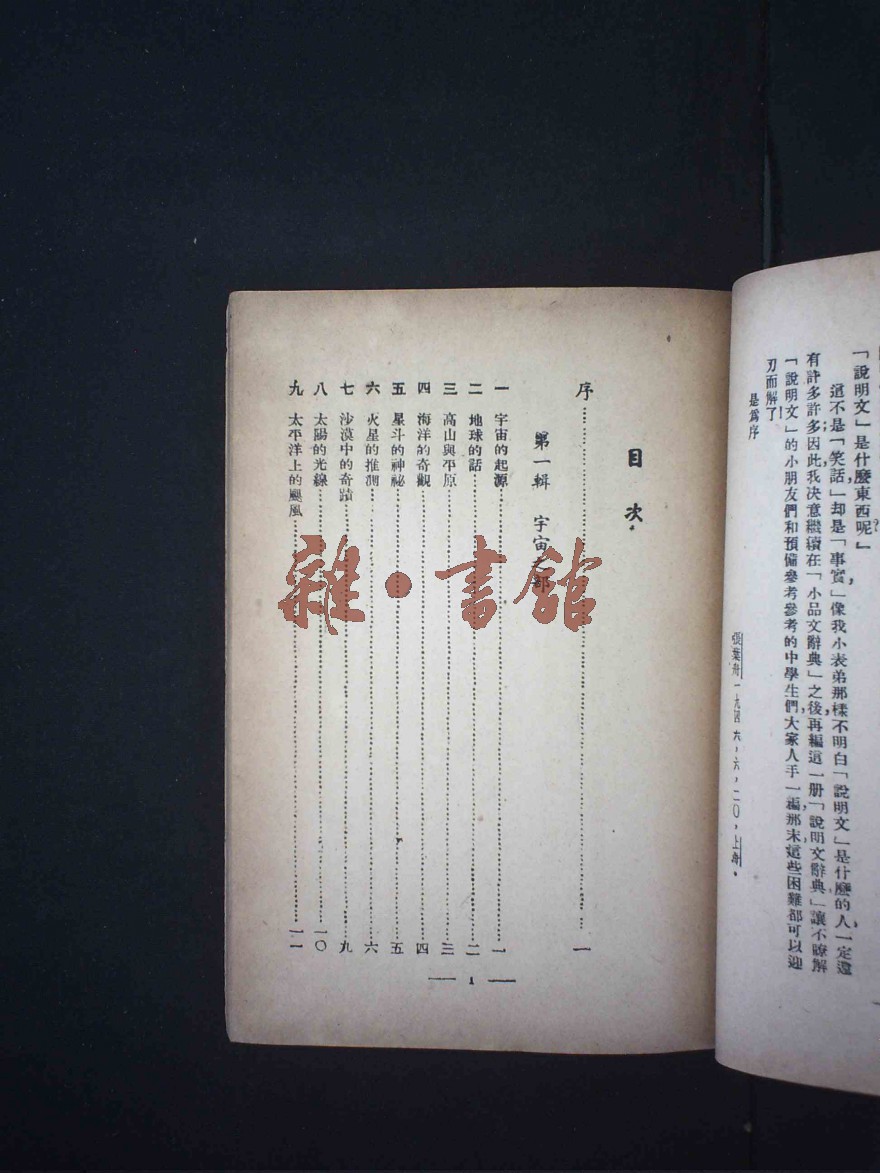 「說明文」是什麼東西呢?」
這不是「笑話」,却是「事實」,像我小表弟那樣不明白「說明文」是什麼的人,一定還
有許多許多;因此,我決意繼續在「小品文辭典」之後,再編這一册「說明文辭典」,讓不瞭解
「說明文」的小朋友們和預備參考參考的中學生們,大家人手一編,那末,這些困難都可以迎
刃而解了!
是爲序
張葉舟一九四六,六,二〇,上海。
目次
序……一
第一輯 宇宙之部
一 宇宙的起源……一
二 地球的話……二
三 高山與平原……三
四 海洋的奇觀……四
五 星斗的神祕……五
六 火星的推測……六
七 沙漠中的奇蹟……九
八 太陽的光線……一〇
九 太平洋上的颶風……一一
— 1 —
雜·書館